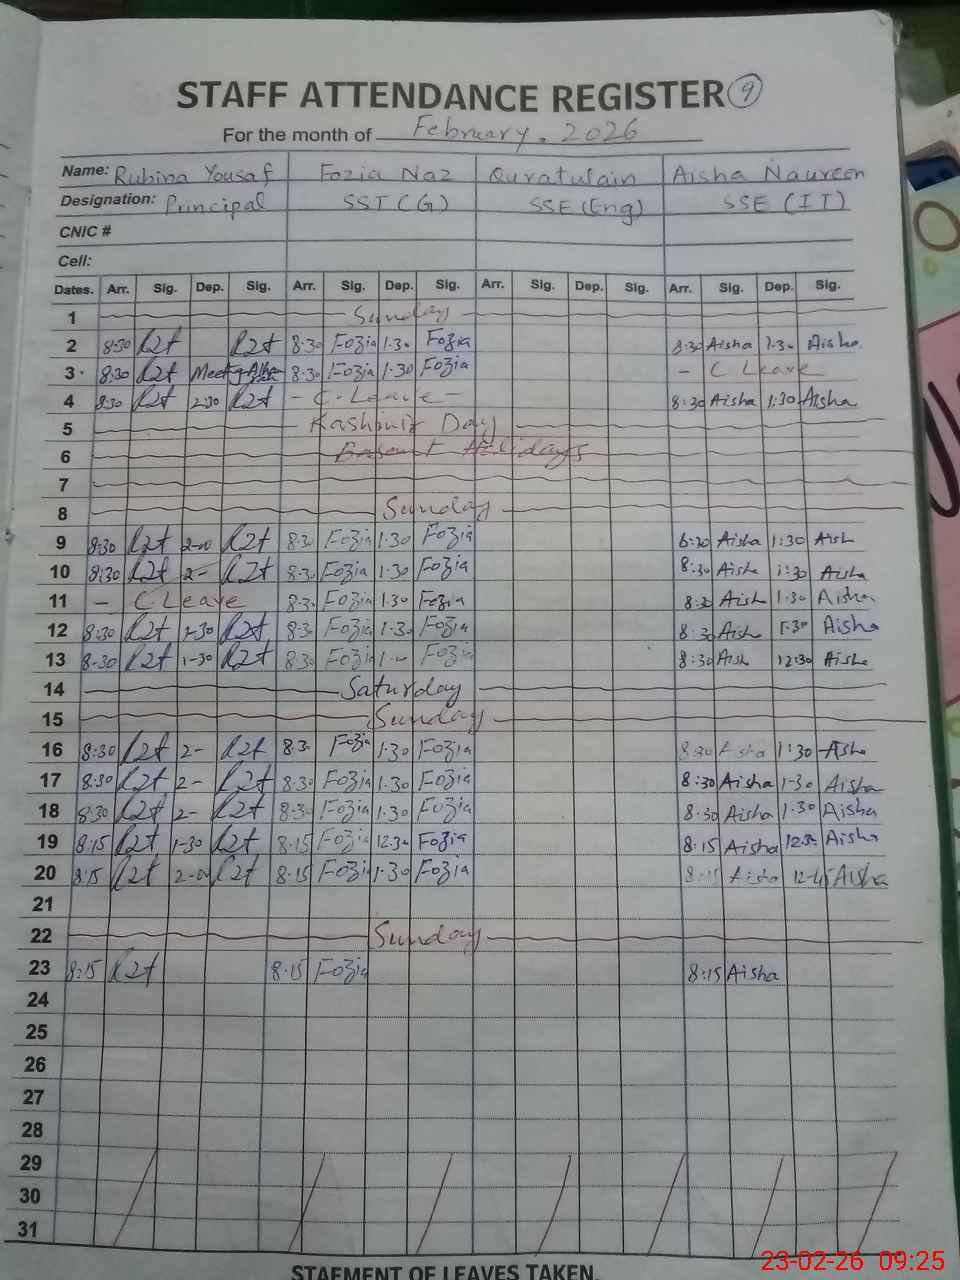 STAFF ATTENDANCE REGISTER 9
For the month of February, 2026
Name: Rubina Yousaf Fozia Naz Quratulain Aisha Naureen
Designation: Principal SST (G) SSE (Eng) SSE (IT)
CNIC #
Cell:
Dates. Arr. Sig. Dep. Sig. Arr. Sig. Dep. Sig. Arr. Sig. Dep. Sig. Arr. Sig. Dep. Sig.
1 Sunday
2 8:30 8:30 Fozia 1:30 Fozia 8:30 Aisha 1:30 Aisha
3 8:30 8:30 Fozia 1:30 Fozia - C Leave
4 8:30 2:30 - C. Leave - 8:30 Aisha 1:30 Aisha
5 Kashmir Day
6 Basant Holidays
7
8 Sunday
9 8:30 2-00 8:30 Fozia 1:30 Fozia Aisha 1:30 Aisha
10 8:30 2- 8:30 Fozia 1:30 Fozia 8:30 Aisha 1:30 Aisha
11 - C. Leave 8:30 Fozia 1:30 Fozia 8:30 Aish 1:30 Aisha
12 8:30 8:30 Fozia 1:30 Fozia 8:30 Aish 1:30 Aisha
13 8:30 1-30 8:30 Fozia Fozia 8:30 Aish 12:30 Aisha
14 Saturday
15 Sunday
16 8:30 2- 8:30 Fozia 1:30 Fozia 8:30 Aisha 1:30 Aisha
17 8:30 2- 8:30 Fozia 1:30 Fozia 8:30 Aisha 1-30 Aisha
18 8:30 2- 8:30 Fozia 1:30 Fozia 8:30 Aisha 1:30 Aisha
19 8:15 1-30 8:15 Fozia 12:30 Fozia 8:15 Aisha 12:30 Aisha
20 8:15 2-00 8:15 Fozia 1:30 Fozia 8:15 Aisha Aisha
21
22 Sunday
23 8:15 8:15 Fozia 8:15 Aisha
24
25
26
27
28
29
30
31
STAEMENT OF LEAVES TAKEN.
23-02-26 09:25